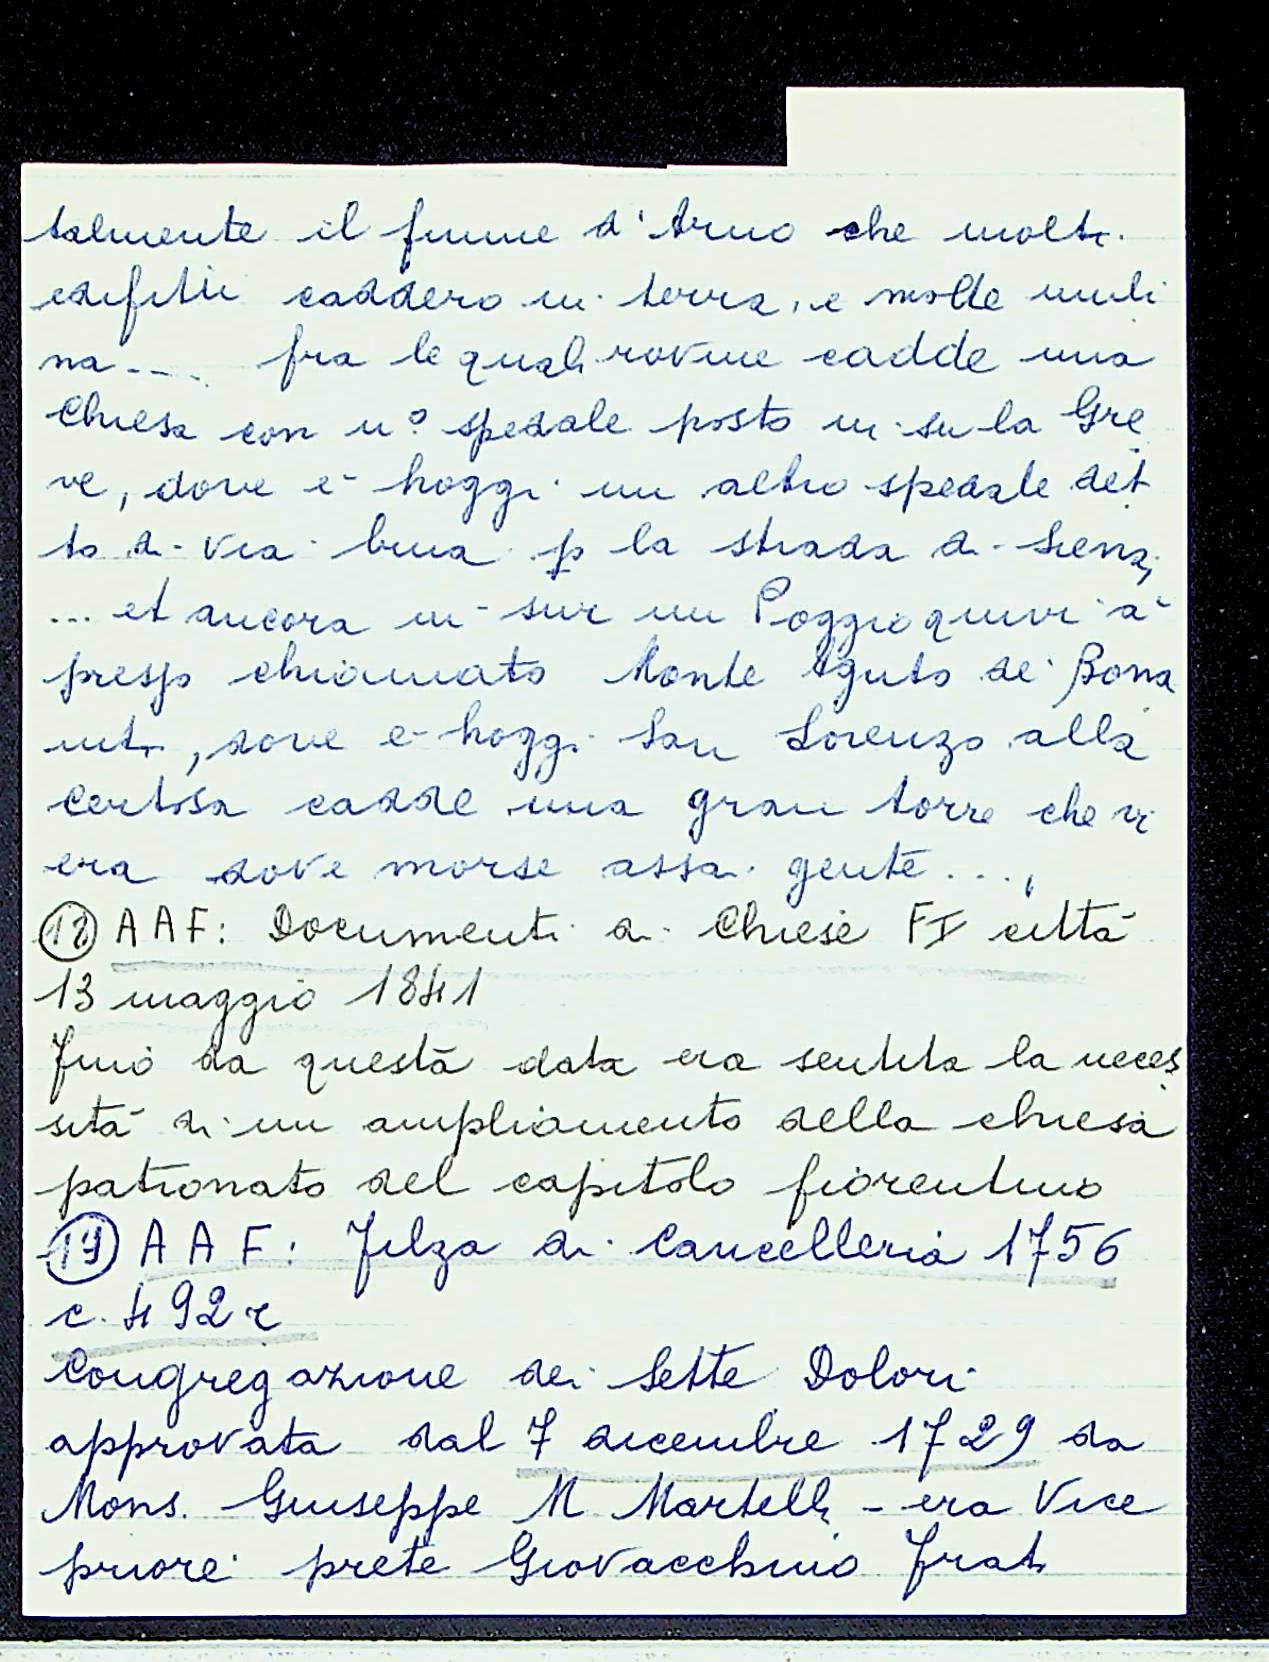 talmente il fiume d'Arno che molti
edifitii caddero in terra, e molte muli
na.... fra le quali rovine cadde una
Chiesa con uº spedale posto in su la Gre
ve, dove e hoggi un altro spedale det
to di via buia p la strada di Siena,
... et ancora in sur un Poggio quivi a
presso chiamato Monte Aguto de' Bona
iuti, dove e hoggi San Lorenzo alla
Certosa cadde una gran torre che vi
era dove morse assai gente...,
(18) A A F: Documenti di Chiese FI città
13 maggio 1841
Fino da questa data era sentita la neces
sità di un ampliamento della chiesa
patronato del capitolo fiorentino
(19) A A F: Filza di Cancelleria 1756
c. 492 r
Congregazione dei Sette Dolori
approvata dal 7 dicembre 1729 da
Mons. Giuseppe M Martelli - era Vice
priore prete Giovacchino Frati